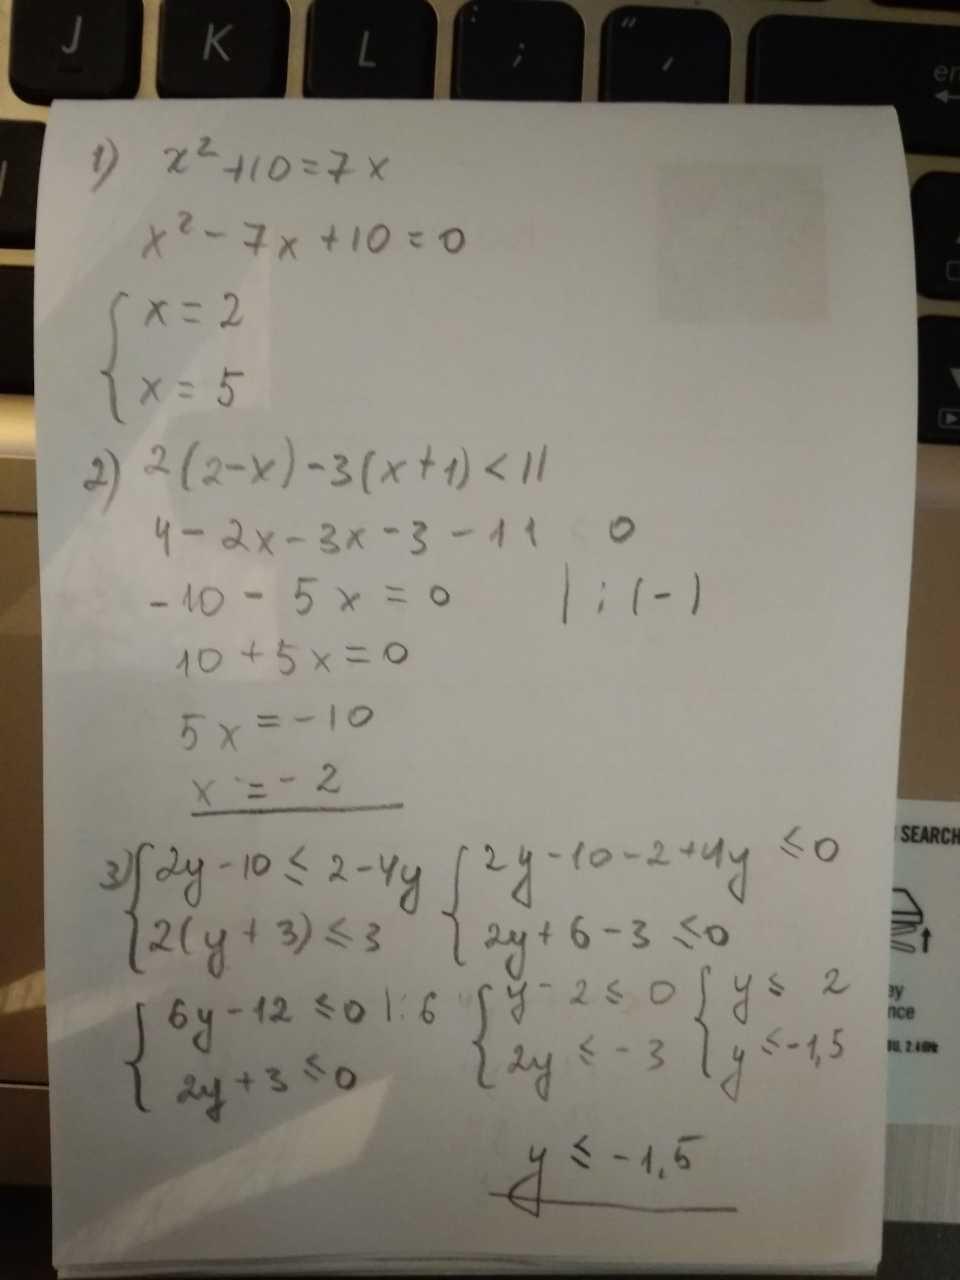 J K L : ; " ,
en
1) x² + 10 = 7x
x² - 7x + 10 = 0
{ x = 2
x = 5
2) 2(2-x) - 3(x+1) < 11
4 - 2x - 3x - 3 - 11 0
-10 - 5x = 0 | : (-)
10 + 5x = 0
5x = -10
x = -2
3) { 2y - 10 ≤ 2 - 4y { 2y - 10 - 2 + 4y ≤ 0
2(y + 3) ≤ 3 2y + 6 - 3 ≤ 0
{ 6y - 12 ≤ 0 |: 6 { y - 2 ≤ 0 { y ≤ 2
2y + 3 ≤ 0 2y ≤ -3 y ≤ -1,5
y ≤ -1,5
SEARCH